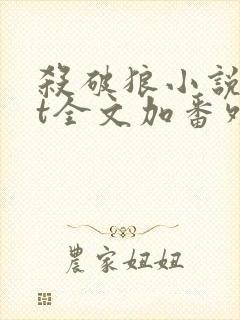 殺破狼小說
t全文加番外
農家妞妞